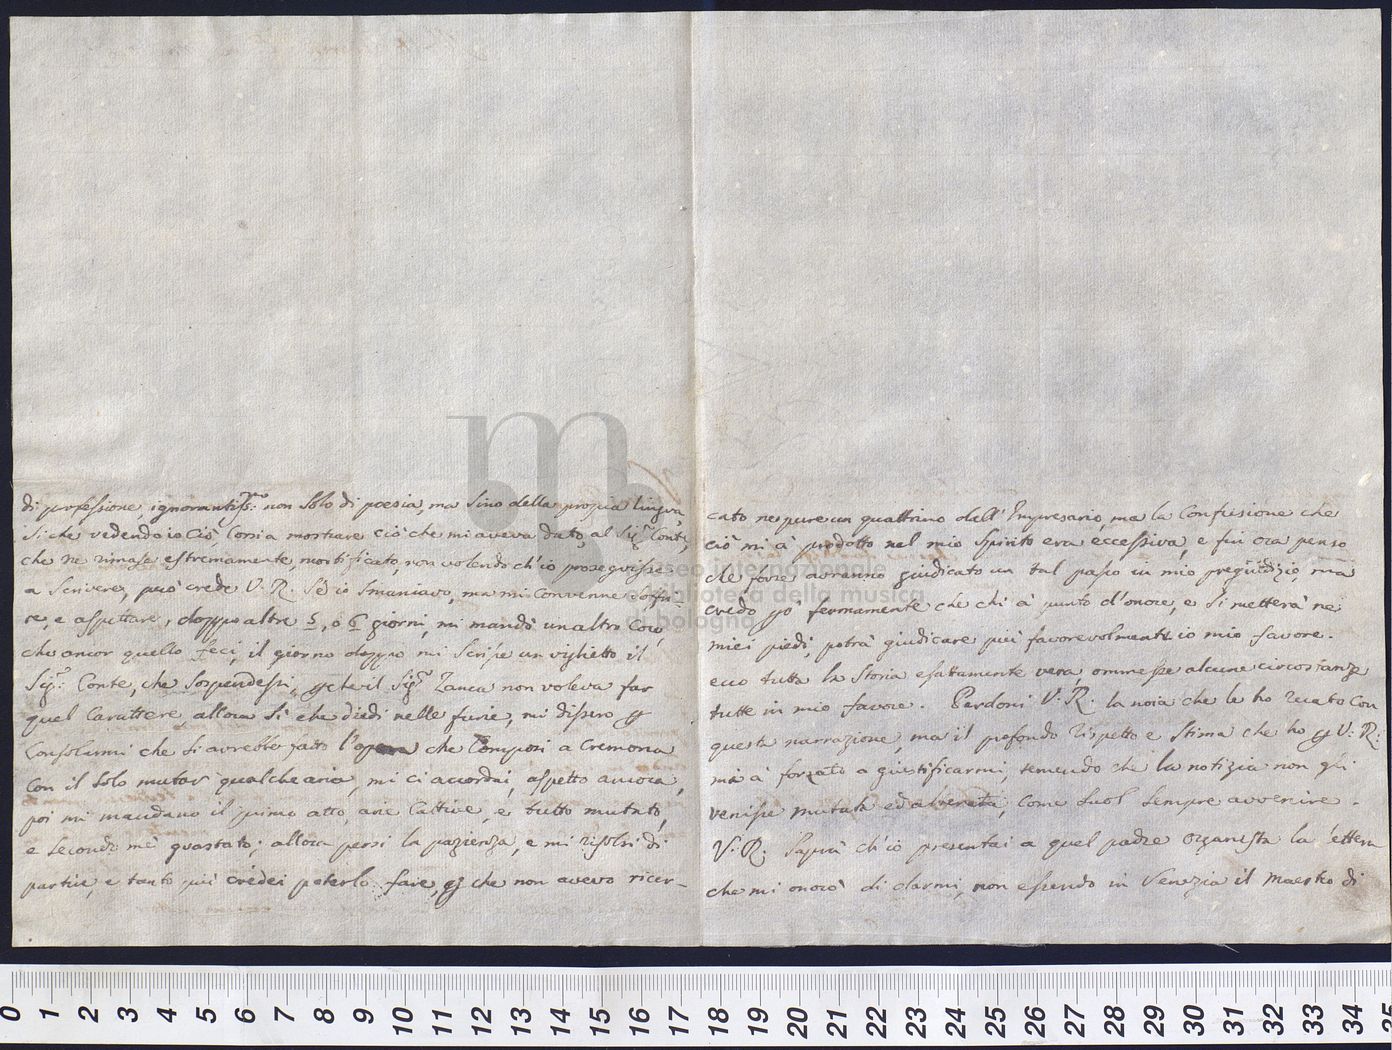 di professione, ignorantiss.mo non solo di poesia, ma sino della propria lingua,
si che vedendo io ciò, Corsi a mostrare ciò che mi aveva dato, al Sig.r Conte,
che ne rimase estremamente mortificato, non volendo ch'io proseguissi
a scrivere, può crede V. R. Se io smaniavo, ma mi convenne soffri-
re, e aspettare, doppo altre 5, o 6 giorni, mi mandò un altro Coro,
che ancor quello feci, il giorno doppo mi scrisse un viglietto il
Sig.r Conte, che sospendessi, perche il Sig.r Zanca non voleva far
quel Carattere, allora si che diedi nelle furie, mi dissero per
Consolarmi che si avrebbe fatto l'opera che Composi a Cremona
con il solo mutar qualche aria, mi ci accordai, aspetto ancora,
poi mi mandano il primo atto, arie Cattive, e tutto mutato,
e secondo me guastato; allora persi la pazienza, e mi risolsi di
partire, e tanto più credei poterlo fare, che non avevo ricer-
cato neppure un quattrino dall'Impresario, ma la Confusione che
ciò mi à prodotto nel mio spirito era eccessiva, e fin ora penso
che forse avranno giudicato un tal passo in mio pregiudizio, ma
credo fermamente che chi à punto d'onore, e si metterà ne
miei piedi, potrà giudicare più favorevolmente io mio favore.
ecco tutta la Storia esattamente vera, ommesse alcune circostanze
tutte in mio favore. Perdoni V. R. la noia che le ho recato con
questa narrazione, ma il profondo rispetto e stima che ho per V. R.
mi à forzato a giustificarmi, temendo che la notizia non gli
venisse mutata ed alterata, come suol sempre avvenire.
V. R. saprà ch'io presentai a quel padre organista la lettera
che mi onorò di darmi, non essendo in Venezia il Maestro di
museo internazionale
e biblioteca della musica
di bologna
0 1 2 3 4 5 6 7 8 9 10 11 12 13 14 15 16 17 18 19 20 21 22 23 24 25 26 27 28 29 30 31 32 33 34 35